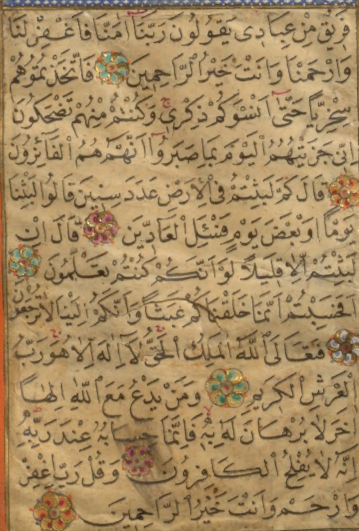 فَرِيقٌ مِنْ عِبَادِي يَقُولُونَ رَبَّنَا آمَنَّا فَاغْفِرْ لَنَا
وَارْحَمْنَا وَأَنْتَ خَيْرُ الرَّاحِمِينَ فَاتَّخَذْتُمُوهُمْ
سِخْرِيًّا حَتَّى أَنْسَوْكُمْ ذِكْرِي وَكُنْتُمْ مِنْهُمْ تَضْحَكُونَ
إِنِّي جَزَيْتُهُمُ الْيَوْمَ بِمَا صَبَرُوا أَنَّهُمْ هُمُ الْفَائِزُونَ
قَالَ كَمْ لَبِثْتُمْ فِي الْأَرْضِ عَدَدَ سِنِينَ قَالُوا لَبِثْنَا
يَوْمًا أَوْ بَعْضَ يَوْمٍ فَسْئَلِ الْعَادِّينَ قَالَ إِنْ
لَبِثْتُمْ إِلَّا قَلِيلًا لَوْ أَنَّكُمْ كُنْتُمْ تَعْلَمُونَ
أَفَحَسِبْتُمْ أَنَّمَا خَلَقْنَاكُمْ عَبَثًا وَأَنَّكُمْ إِلَيْنَا لَا تُرْجَعُونَ
فَتَعَالَى اللَّهُ الْمَلِكُ الْحَقُّ لَا إِلَهَ إِلَّا هُوَ رَبُّ
الْعَرْشِ الْكَرِيمِ وَمَنْ يَدْعُ مَعَ اللَّهِ إِلَهًا
آخَرَ لَا بُرْهَانَ لَهُ بِهِ فَإِنَّمَا حِسَابُهُ عِنْدَ رَبِّهِ
إِنَّهُ لَا يُفْلِحُ الْكَافِرُونَ وَقُلْ رَبِّ اغْفِرْ
وَارْحَمْ وَأَنْتَ خَيْرُ الرَّاحِمِينَ